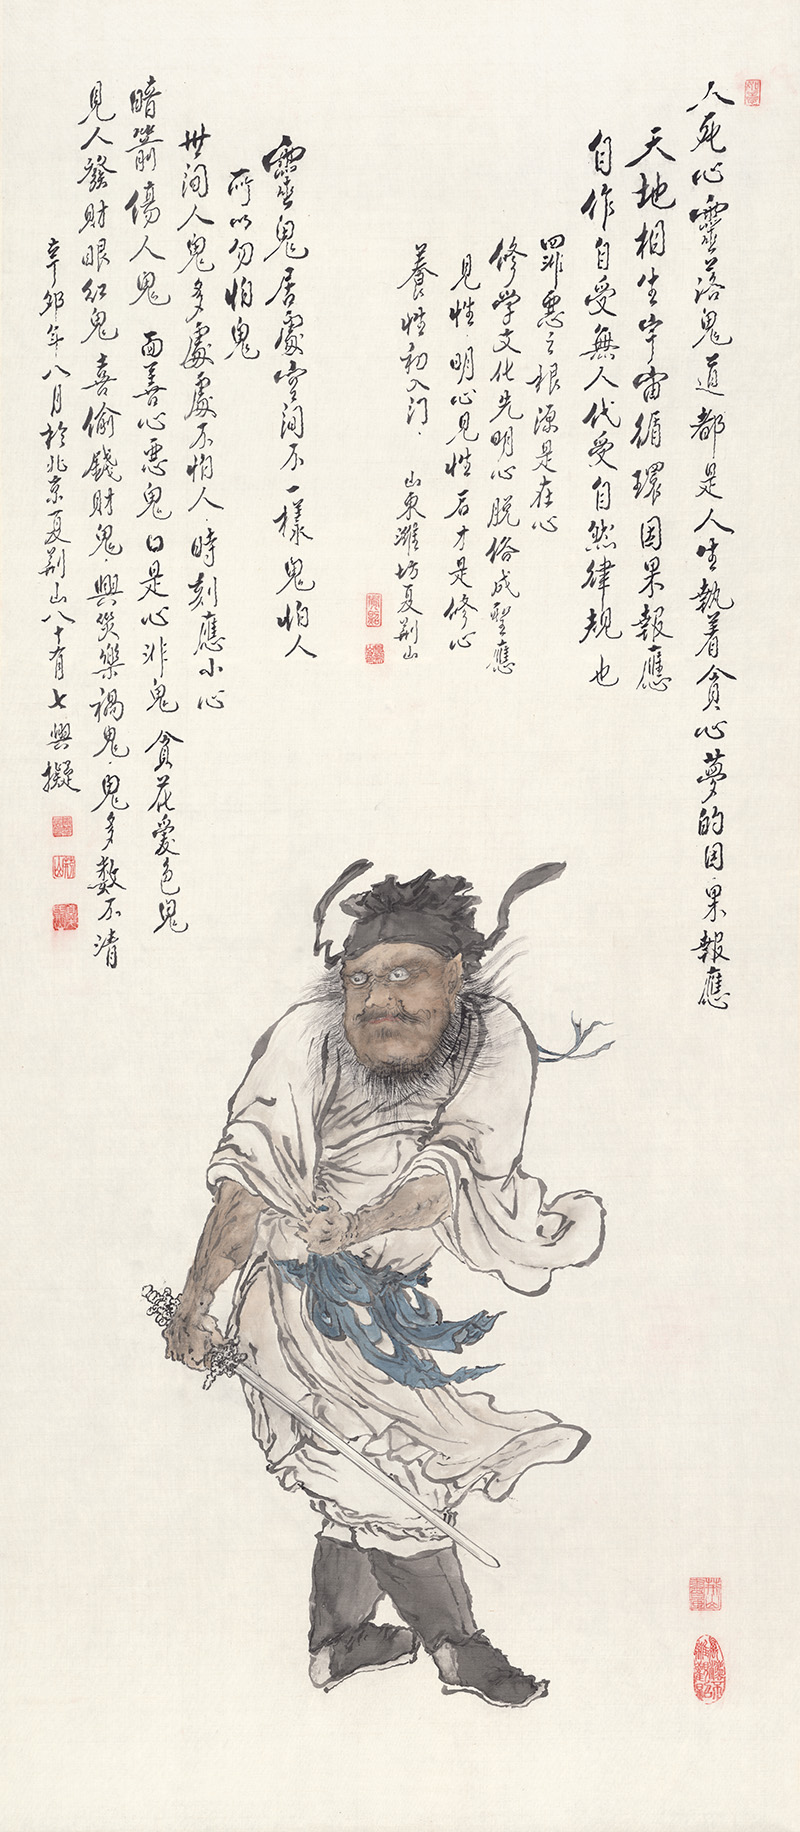 人死心靈落鬼道都是人生執着貪心夢的因果報應
天地相生宇宙循環因果報應
自作自受無人代受自然律規也
罪惡之根源是在心
修学文化先明心脱俗成聖應
見性明心見性后才是修心
養性初入门
山東濰坊夏荆山
靈鬼居處空间不一樣鬼怕人
所以勿怕鬼
世间人鬼多處處不怕人時刻應小心
暗箭傷人鬼 面善心惡鬼口是心非鬼 貪花愛色鬼
見人發財眼红鬼喜偷錢財鬼興災樂禍鬼鬼多数不清
辛卯年八月於北京夏荆山八十有七興擬